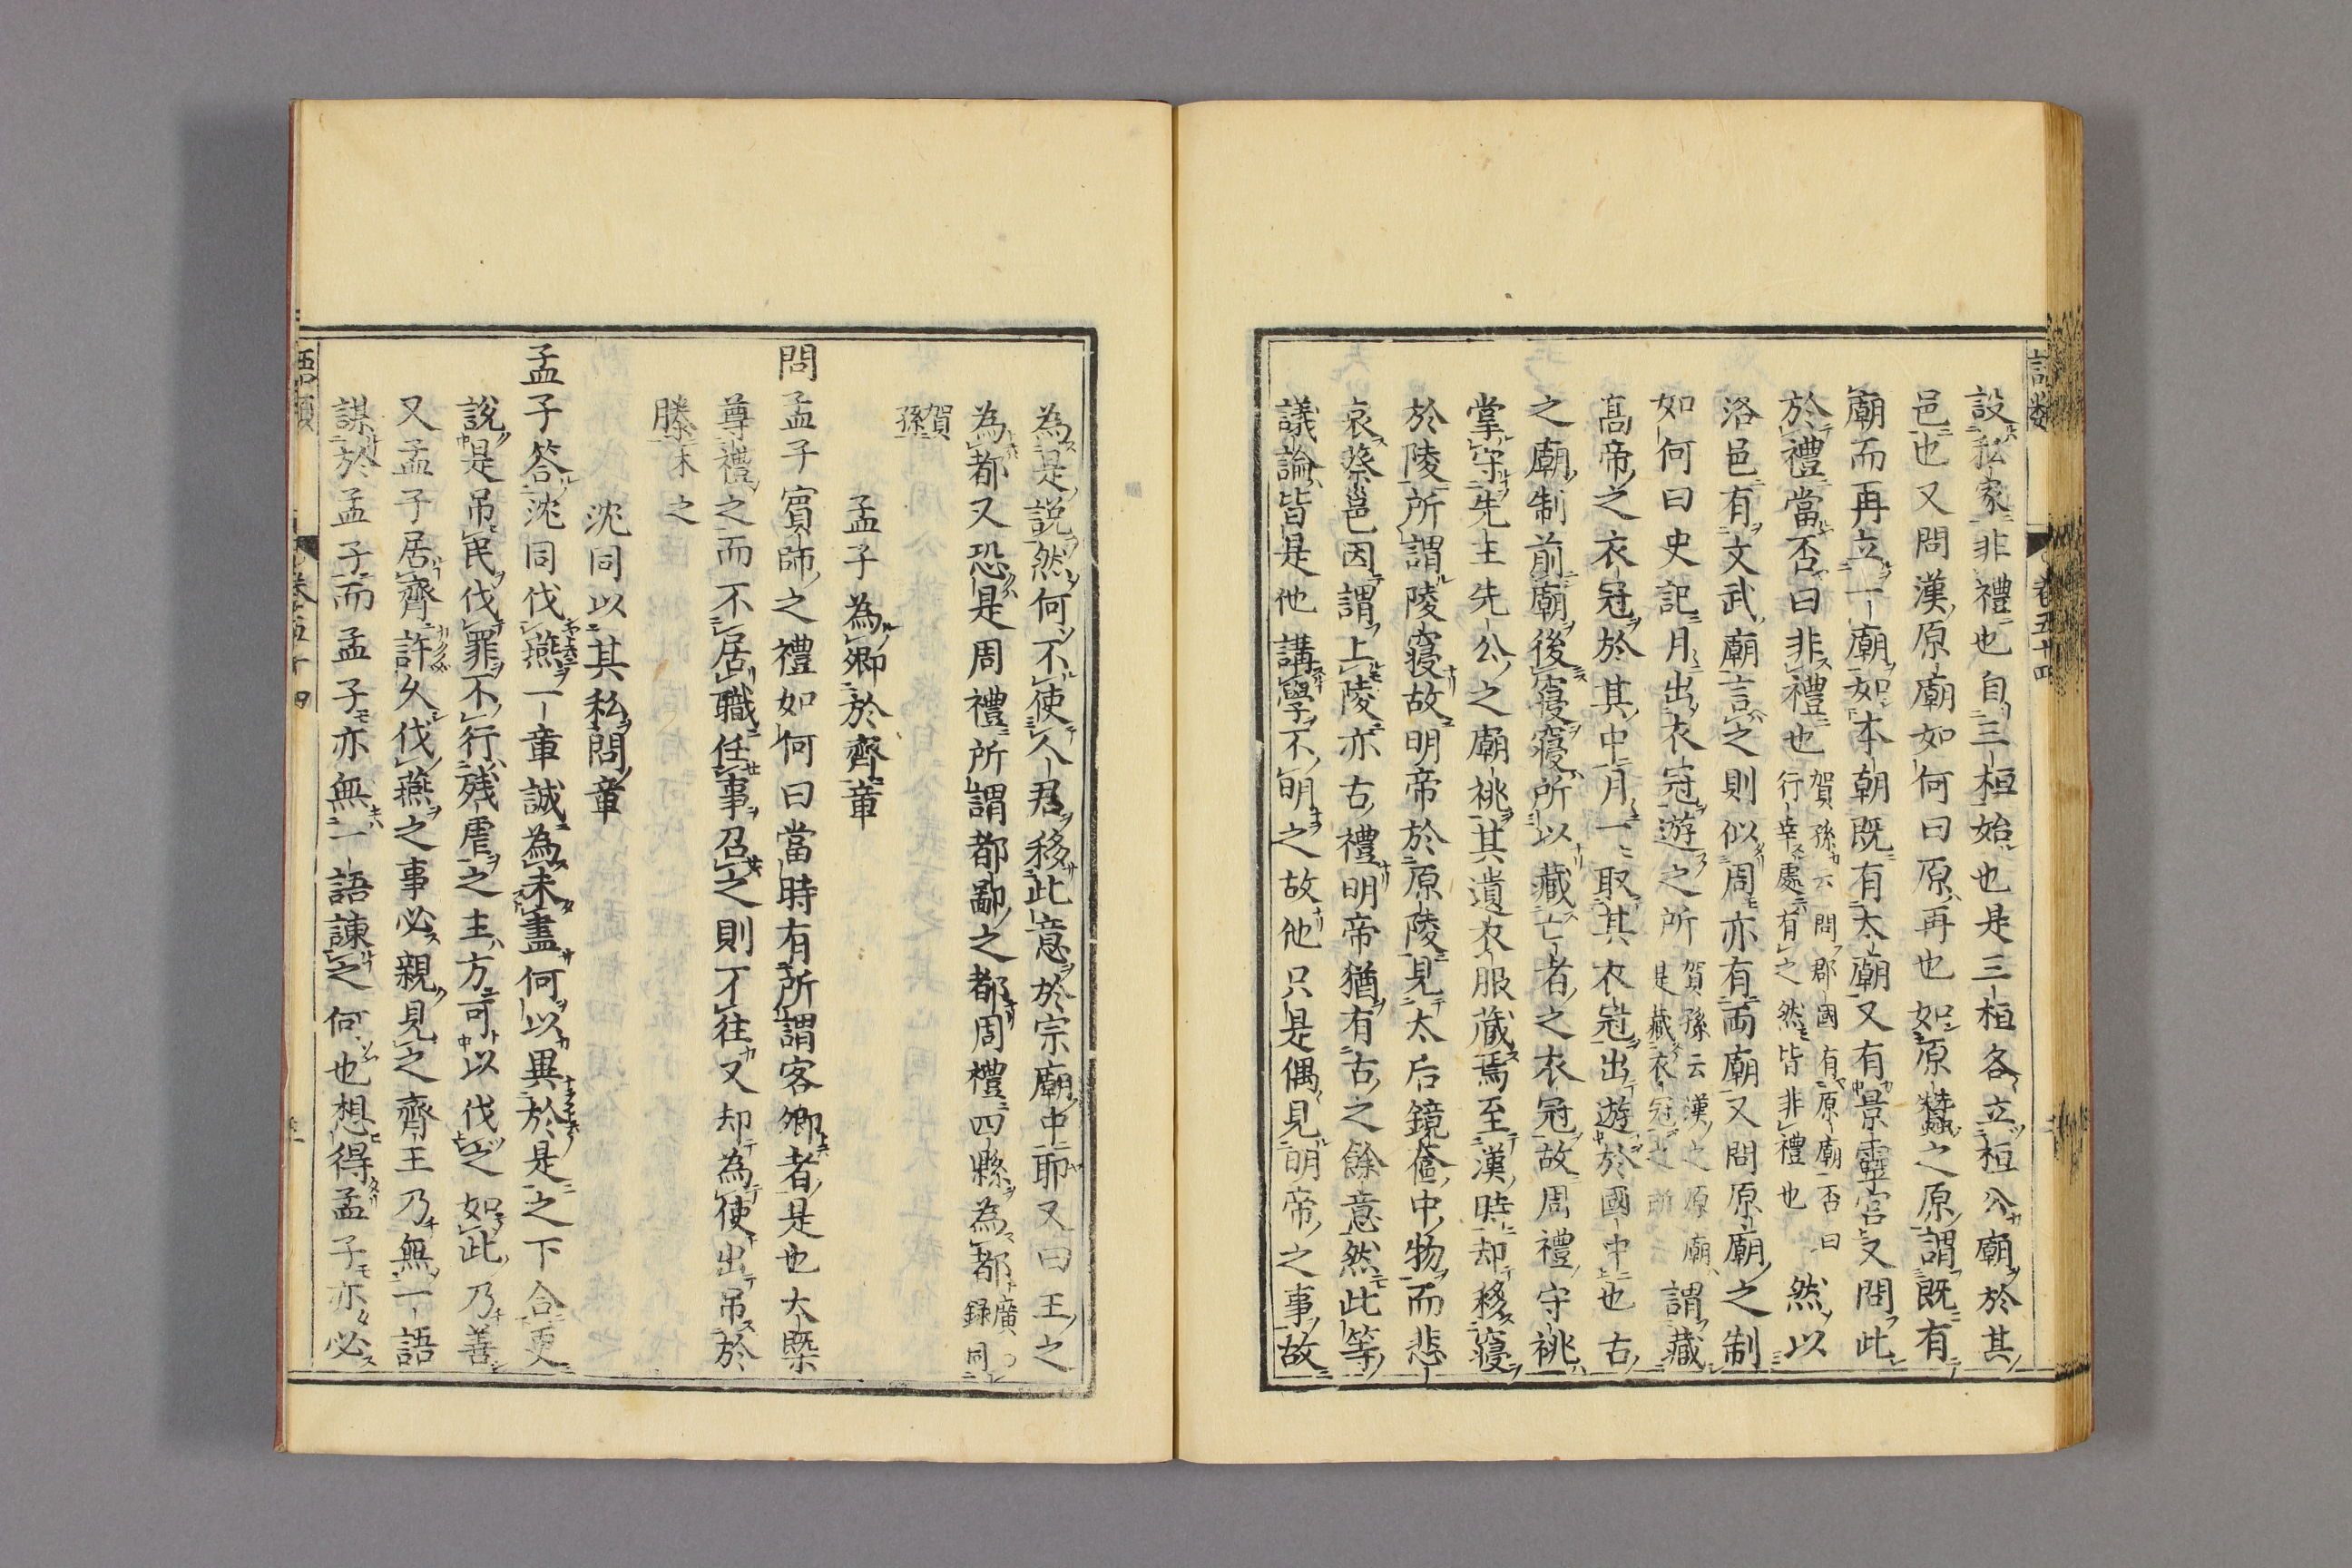 設私家非禮也自三桓始也是三桓各立桓公廟於其
邑也又問漢原廟如何曰原再也如原蠶之原謂既有
廟而再立一廟如本朝既有太廟又有景靈宮又問此
於禮當否曰非禮也賀孫云問郡國有原廟否曰行幸處有之然皆非禮也然以
洛邑有文武廟言之則似周亦有両廟又問原廟之制
如何曰史記月出衣冠遊之所賀孫云漢之原廟是藏衣冠之所謂藏
髙帝之衣冠於其中月一取其衣冠出遊於國中也古
之廟制前廟後寢寢所以藏亡者之衣冠故周禮守祧
掌守先王先公之廟祧其遺衣服藏焉至漢時却移寢
於陵所謂陵寢故明帝於原陵見太后鏡奩中物而悲
哀蔡邕因謂上陵亦古禮明帝猶有古之餘意然此等
議論皆是他講學不明之故他只是偶見明帝之事故
為是説然何不使人君移此意於宗廟中耶又曰王之
為都又恐是周禮所謂都鄙之都周禮四縣為都廣録同
賀孫
孟子為卿於齊章
問孟子賓師之禮如何曰當時有所謂客卿者是也大槩
尊禮之而不居職任事召之則不往又却為使出吊於
滕木之
沈同以其私問章
孟子答沈同伐燕一章誠為未盡何以異於是之下合更
説是吊民伐罪不行殘虐之主方可以伐之如此乃善
又孟子居齊許久伐燕之事必親見之齊王乃無一語
謀於孟子而孟子亦無一語諫之何也想得孟子亦必